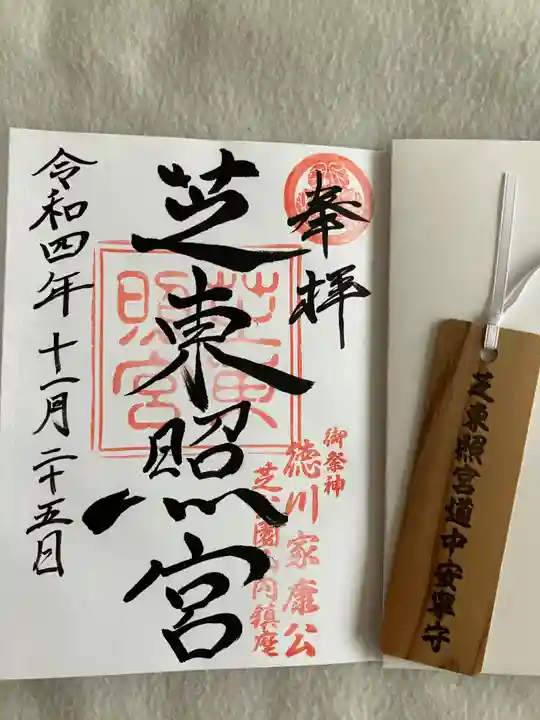 奉拝
芝東照宮
芝東照宮
御祭神
徳川家康公
芝公園内鎮座
令和四年十一月二十五日
芝東照宮道中安寧守